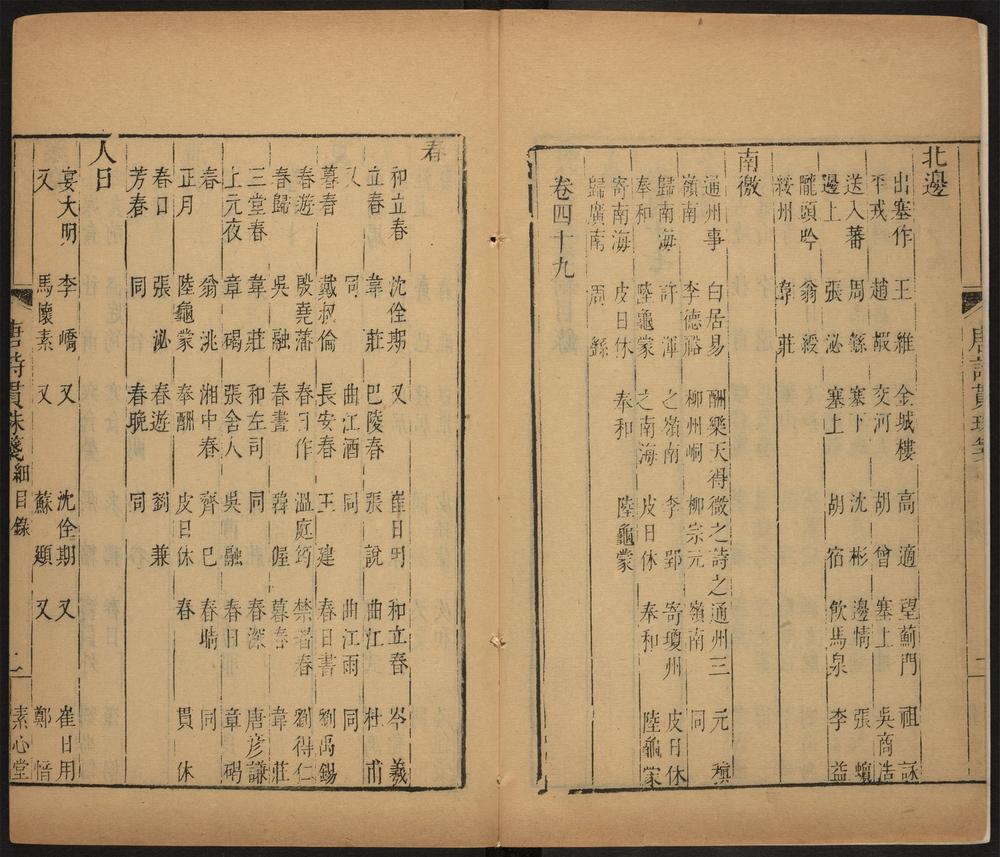 北邊
出塞作 王維 金城樓 高適 望薊門 祖詠
平戎 趙嘏 交河 胡曾 塞上 吳商浩
送入蕃 周繇 塞下 沈彬 邊情 張蠙
邊上 張泌 塞上 胡宿 飲馬泉 李益
隴頭吟 翁綬
綏州 韋莊
南徼
通州事 白居易 酬樂天得微之詩之通州三 元稹
嶺南 李德裕 柳州峒 柳宗元 嶺南 同
歸南海 許渾 之嶺南 李郢 寄瓊州 皮日休
奉和 陸龜蒙 之南海 皮日休 奉和 陸龜蒙
寄南海 皮日休 奉和 陸龜蒙
歸廣南 周繇
卷四十九
唐詩貫珠箋
春
和立春 沈佺期 又 崔日用 和立春 岑羲
立春 韋莊 巴陵春 張說 曲江 杜甫
又 同 曲江酒 同 曲江雨 同
暮春 戴叔倫 長安春 王建 春日書 劉禹錫
春遊 殷堯藩 春日作 溫庭筠 禁署春 劉得仁
春歸 吳融 春書 韓偓 暮春 韋莊
三堂春 韋莊 和左司 同 春深 唐彥謙
上元夜 章碣 張舍人 吳融 春日 章碣
春 翁洮 湘中春 齊已 春晴 同
正月 陸龜蒙 奉酬 皮日休 春 貫休
春日 張泌 春遊 劉兼
芳春 同 春晚 同
人日
宴大明 李嶠 又 沈佺期 又 崔日用
又 馬懷素 又 蘇頲 又 鄭愔
唐詩貫珠箋 細目錄 二 素心堂